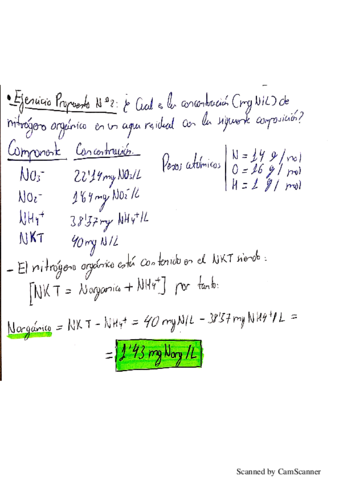 • Ejercicio Propuesto Nº2: ¿Cual es la concentración (mg N/L) de
nitrógeno orgánico en un agua residual con la siguiente composición?
Componente Concentración
NO3- 22'14 mg NO3/L
NO2- 1'64 mg NO2-/L
NH4+ 38'37 mg NH4+/L
NKT 40 mg N/L
Pesos atómicos
N = 14 g/mol
O = 16 g/mol
H = 1 g/mol
- El nitrógeno orgánico está contenido en el NKT siendo:
[NKT = Norganico + NH4+] por tanto:
Norgánico = NKT - NH4+ = 40 mg N/L - 38'37 mg NH4+/L =
= 1'43 mg Norg/L
Scanned by CamScanner